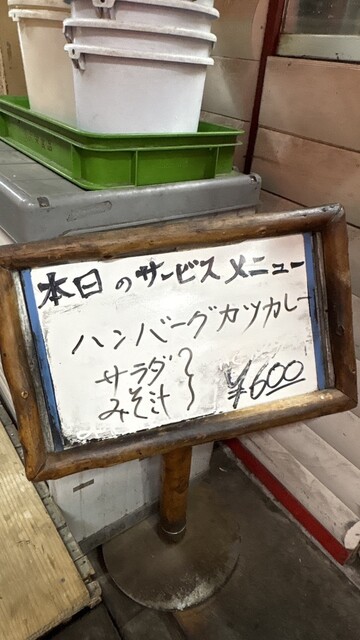 本日のサービスメニュー
ハンバーグカツカレー
サラダ
みそ汁
¥600